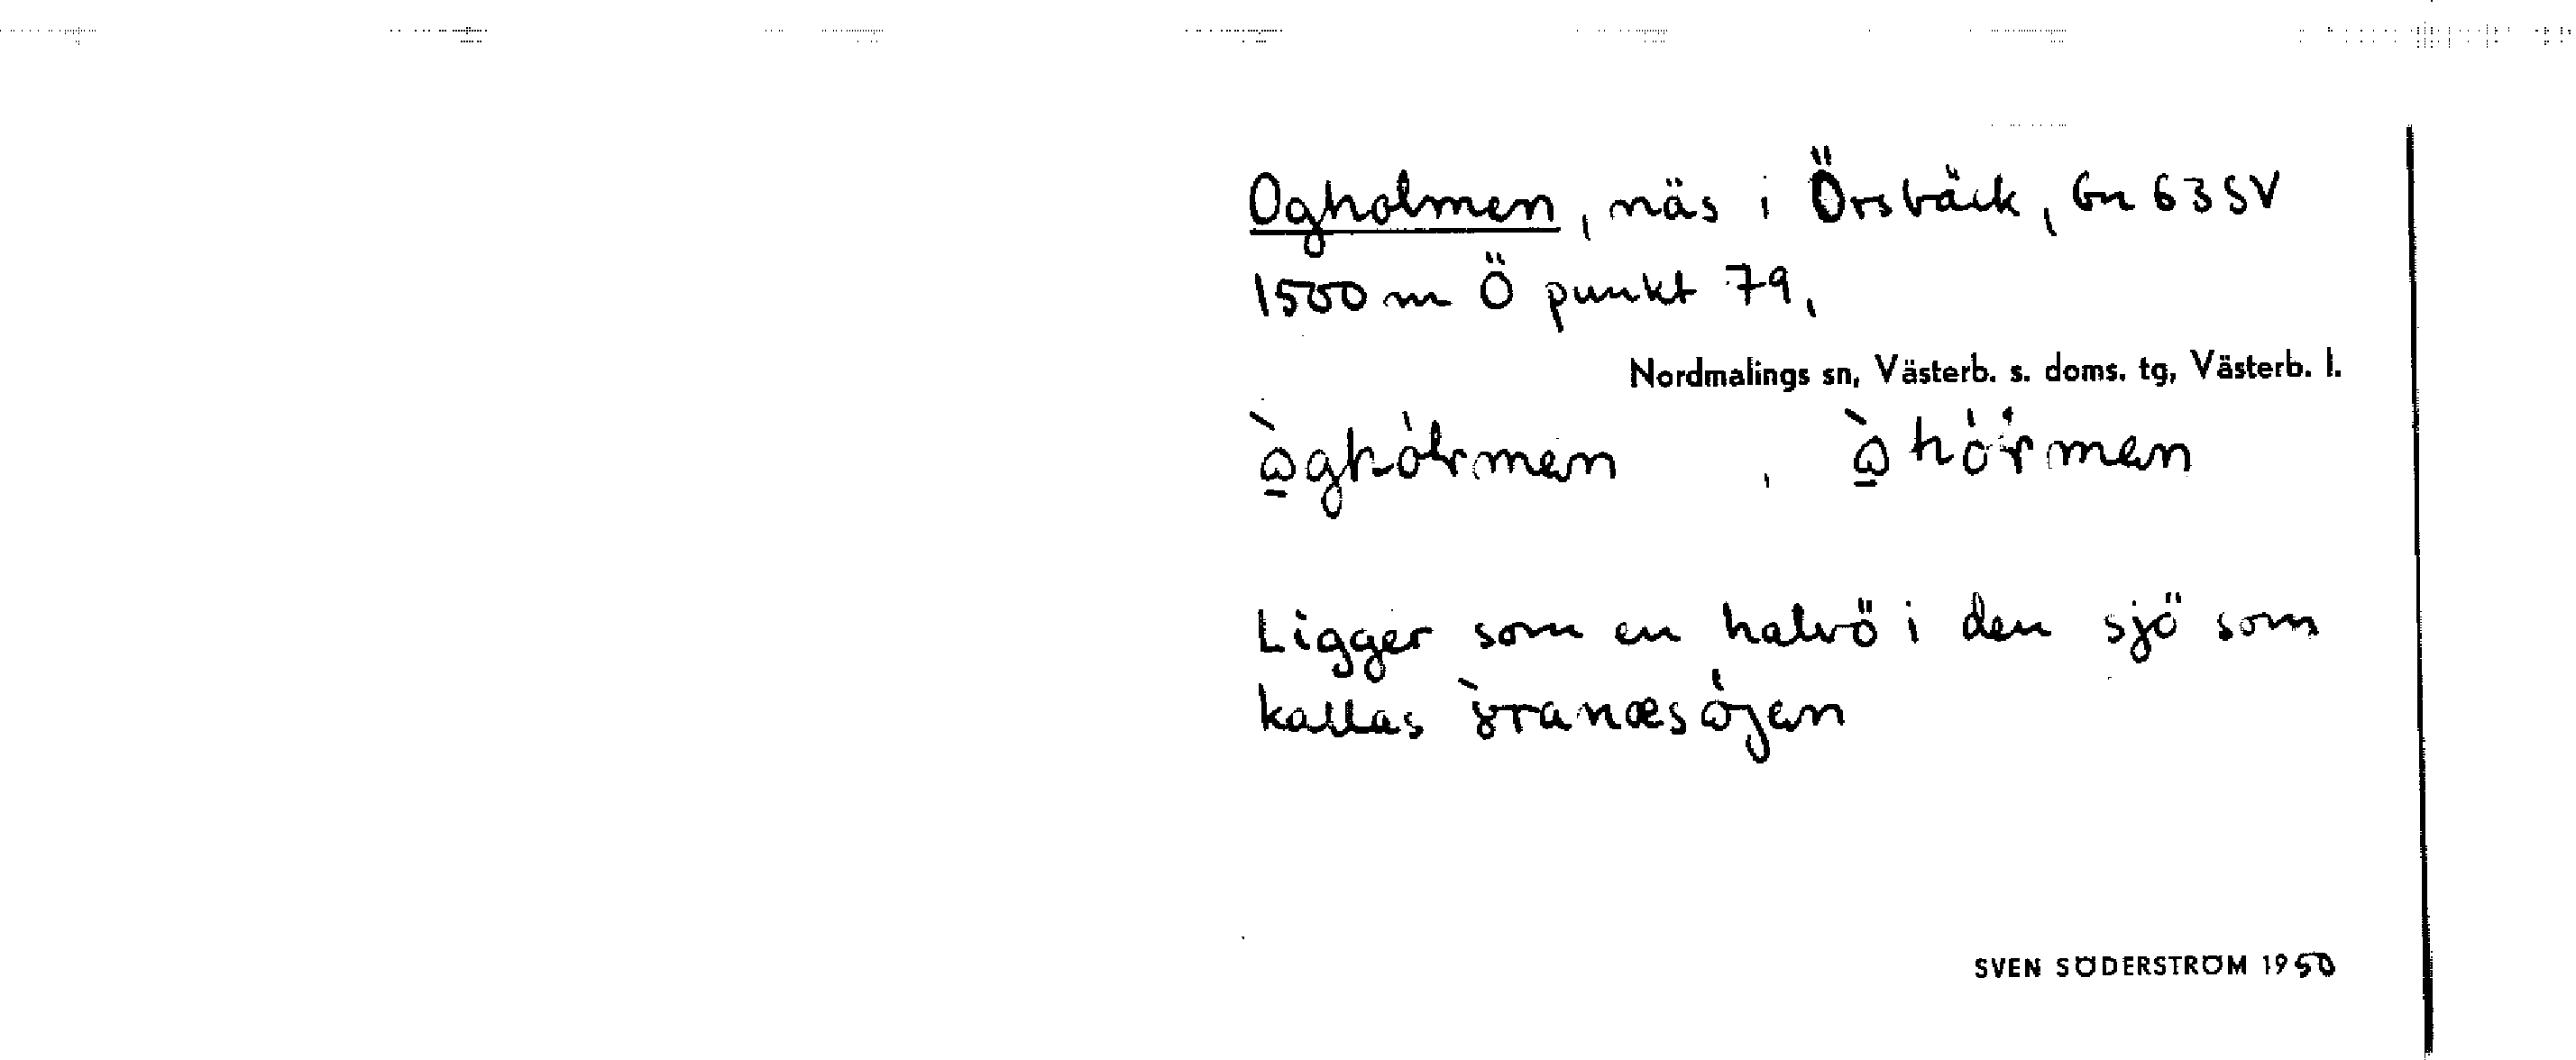 Ogholmen, näs i Örsbäck, Gn 63 SV
1500 m Ö punkt 79,
Nordmalings sn, Västerb. s. doms. tg, Västerb. l.
Ligger som en halvö i den sjö som
kallas
SVEN SÖDERSTRÖM 1950